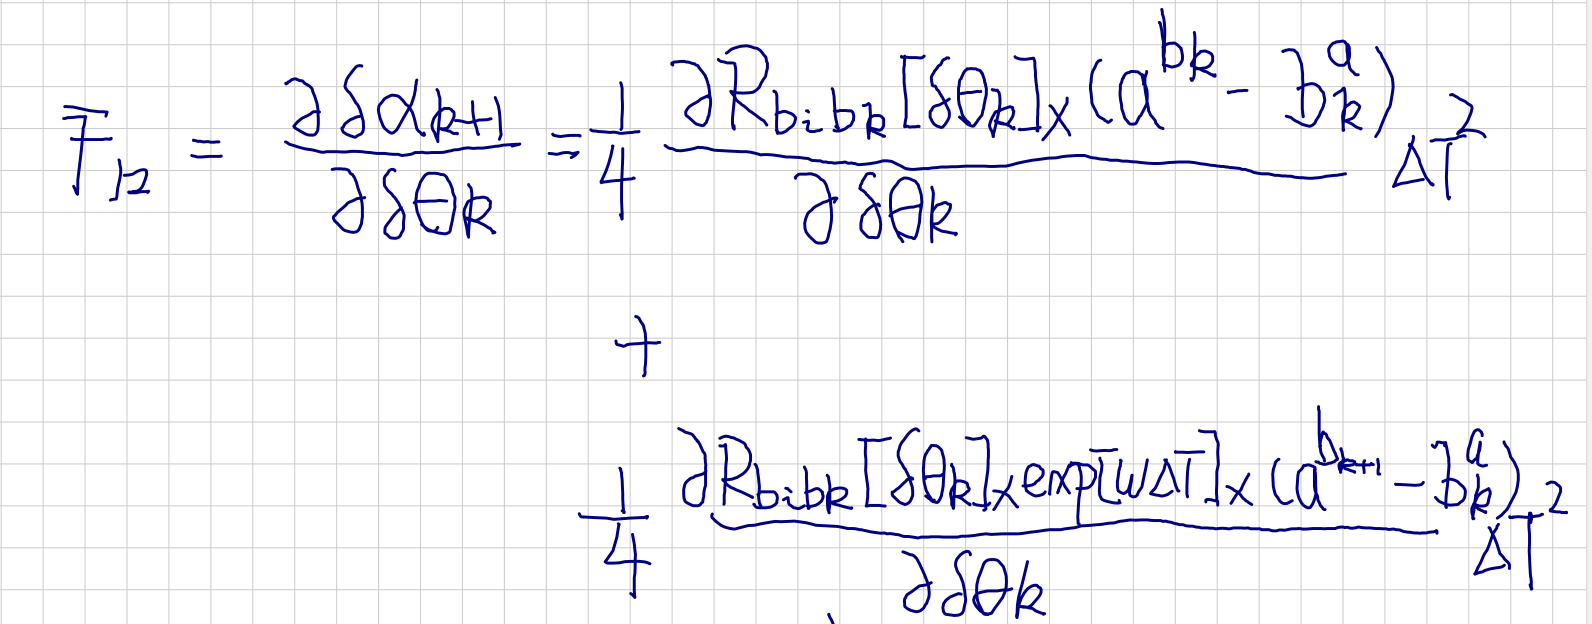 F₁₂ = ∂δα_{k+1} / ∂δθ_k = 1/4 ∂R_{b_i b_k}[δθ_k]_×(a^{b_k} - b_k^a) / ∂δθ_k ΔT²
+
1/4 ∂R_{b_i b_k}[δθ_k]_× exp[ωΔT]_×(a^{b_{k+1}} - b_k^a) / ∂δθ_k ΔT²